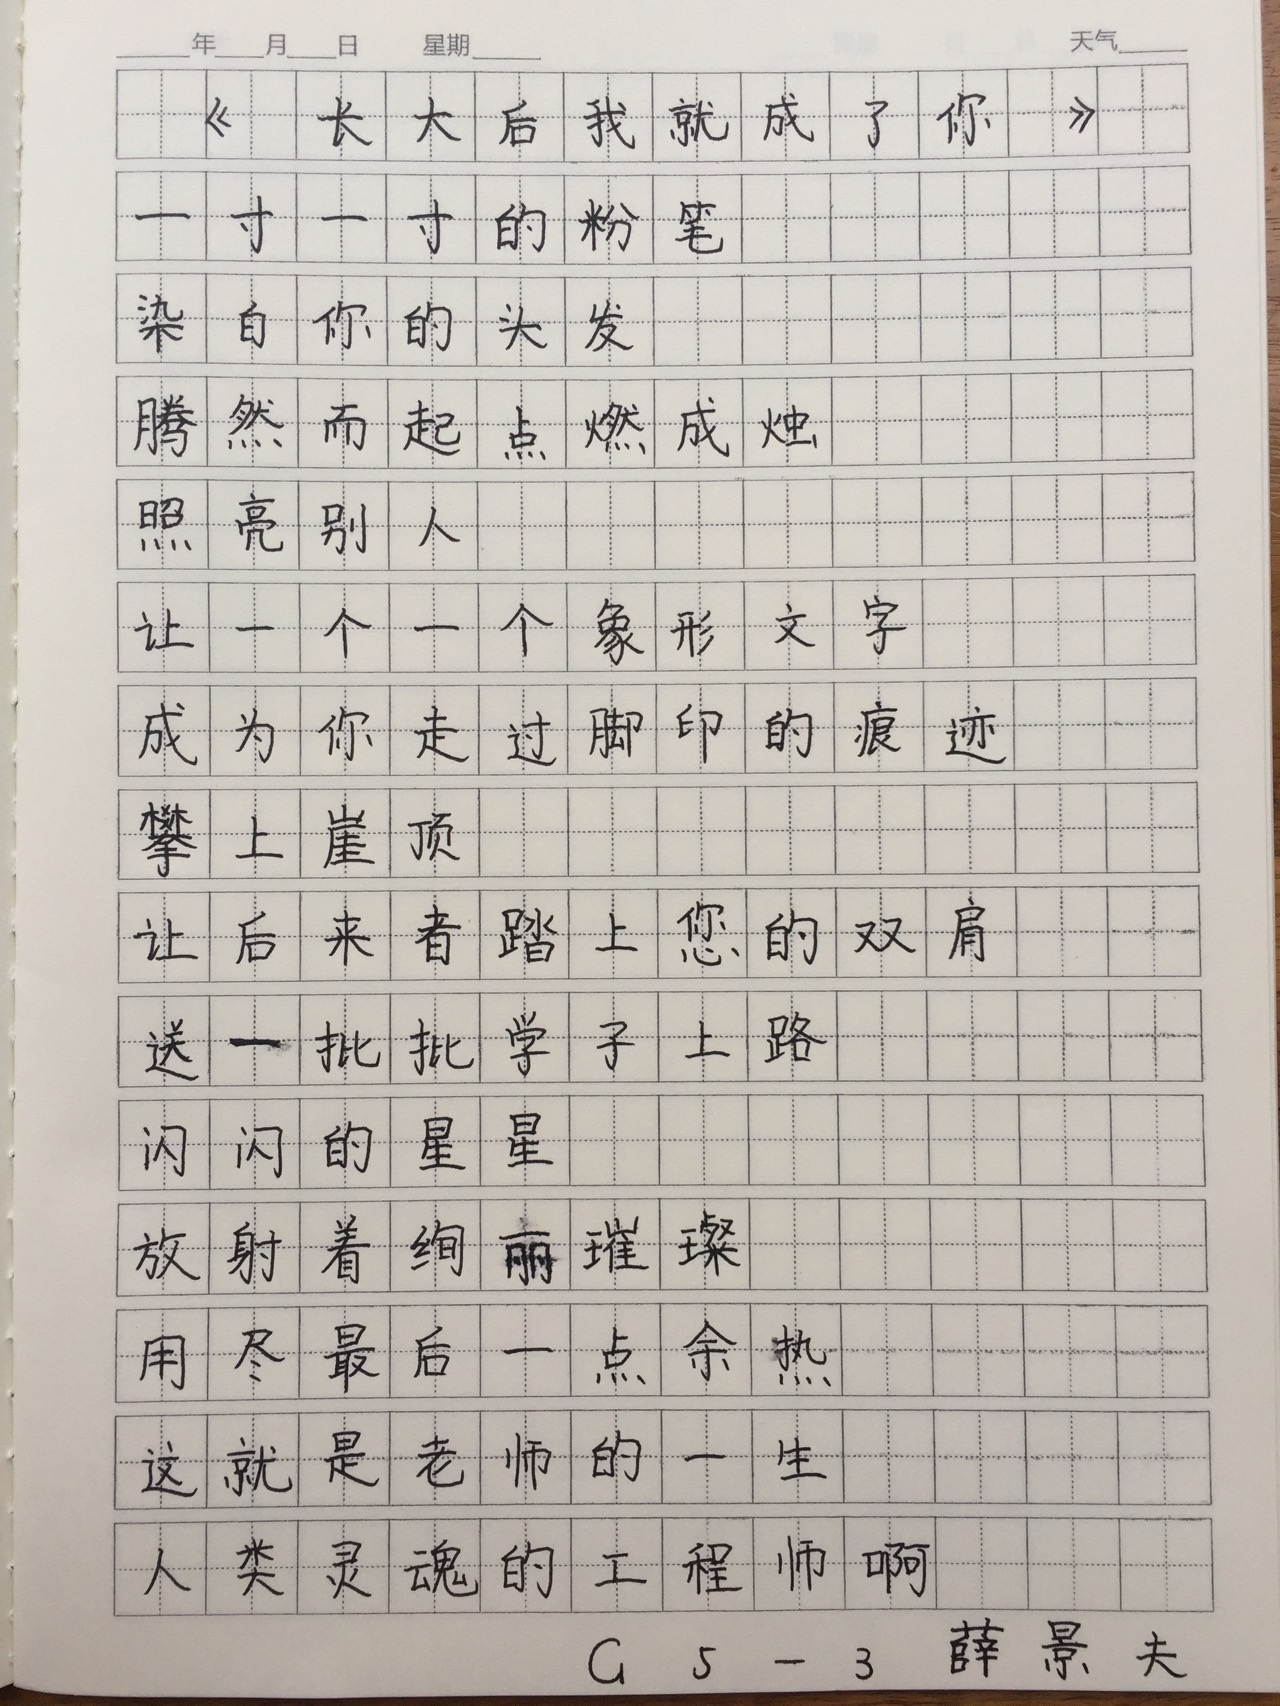 年 月 日 星期 天气
《长大后我就成了你》
一寸一寸的粉笔
染白你的头发
腾然而起点燃成烛
照亮别人
让一个一个象形文字
成为你走过脚印的痕迹
攀上崖顶
让后来者踏上您的双肩
送一批批学子上路
闪闪的星星
放射着绚丽璀璨
用尽最后一点余热
这就是老师的一生
人类灵魂的工程师啊
G5-3 薛景夫